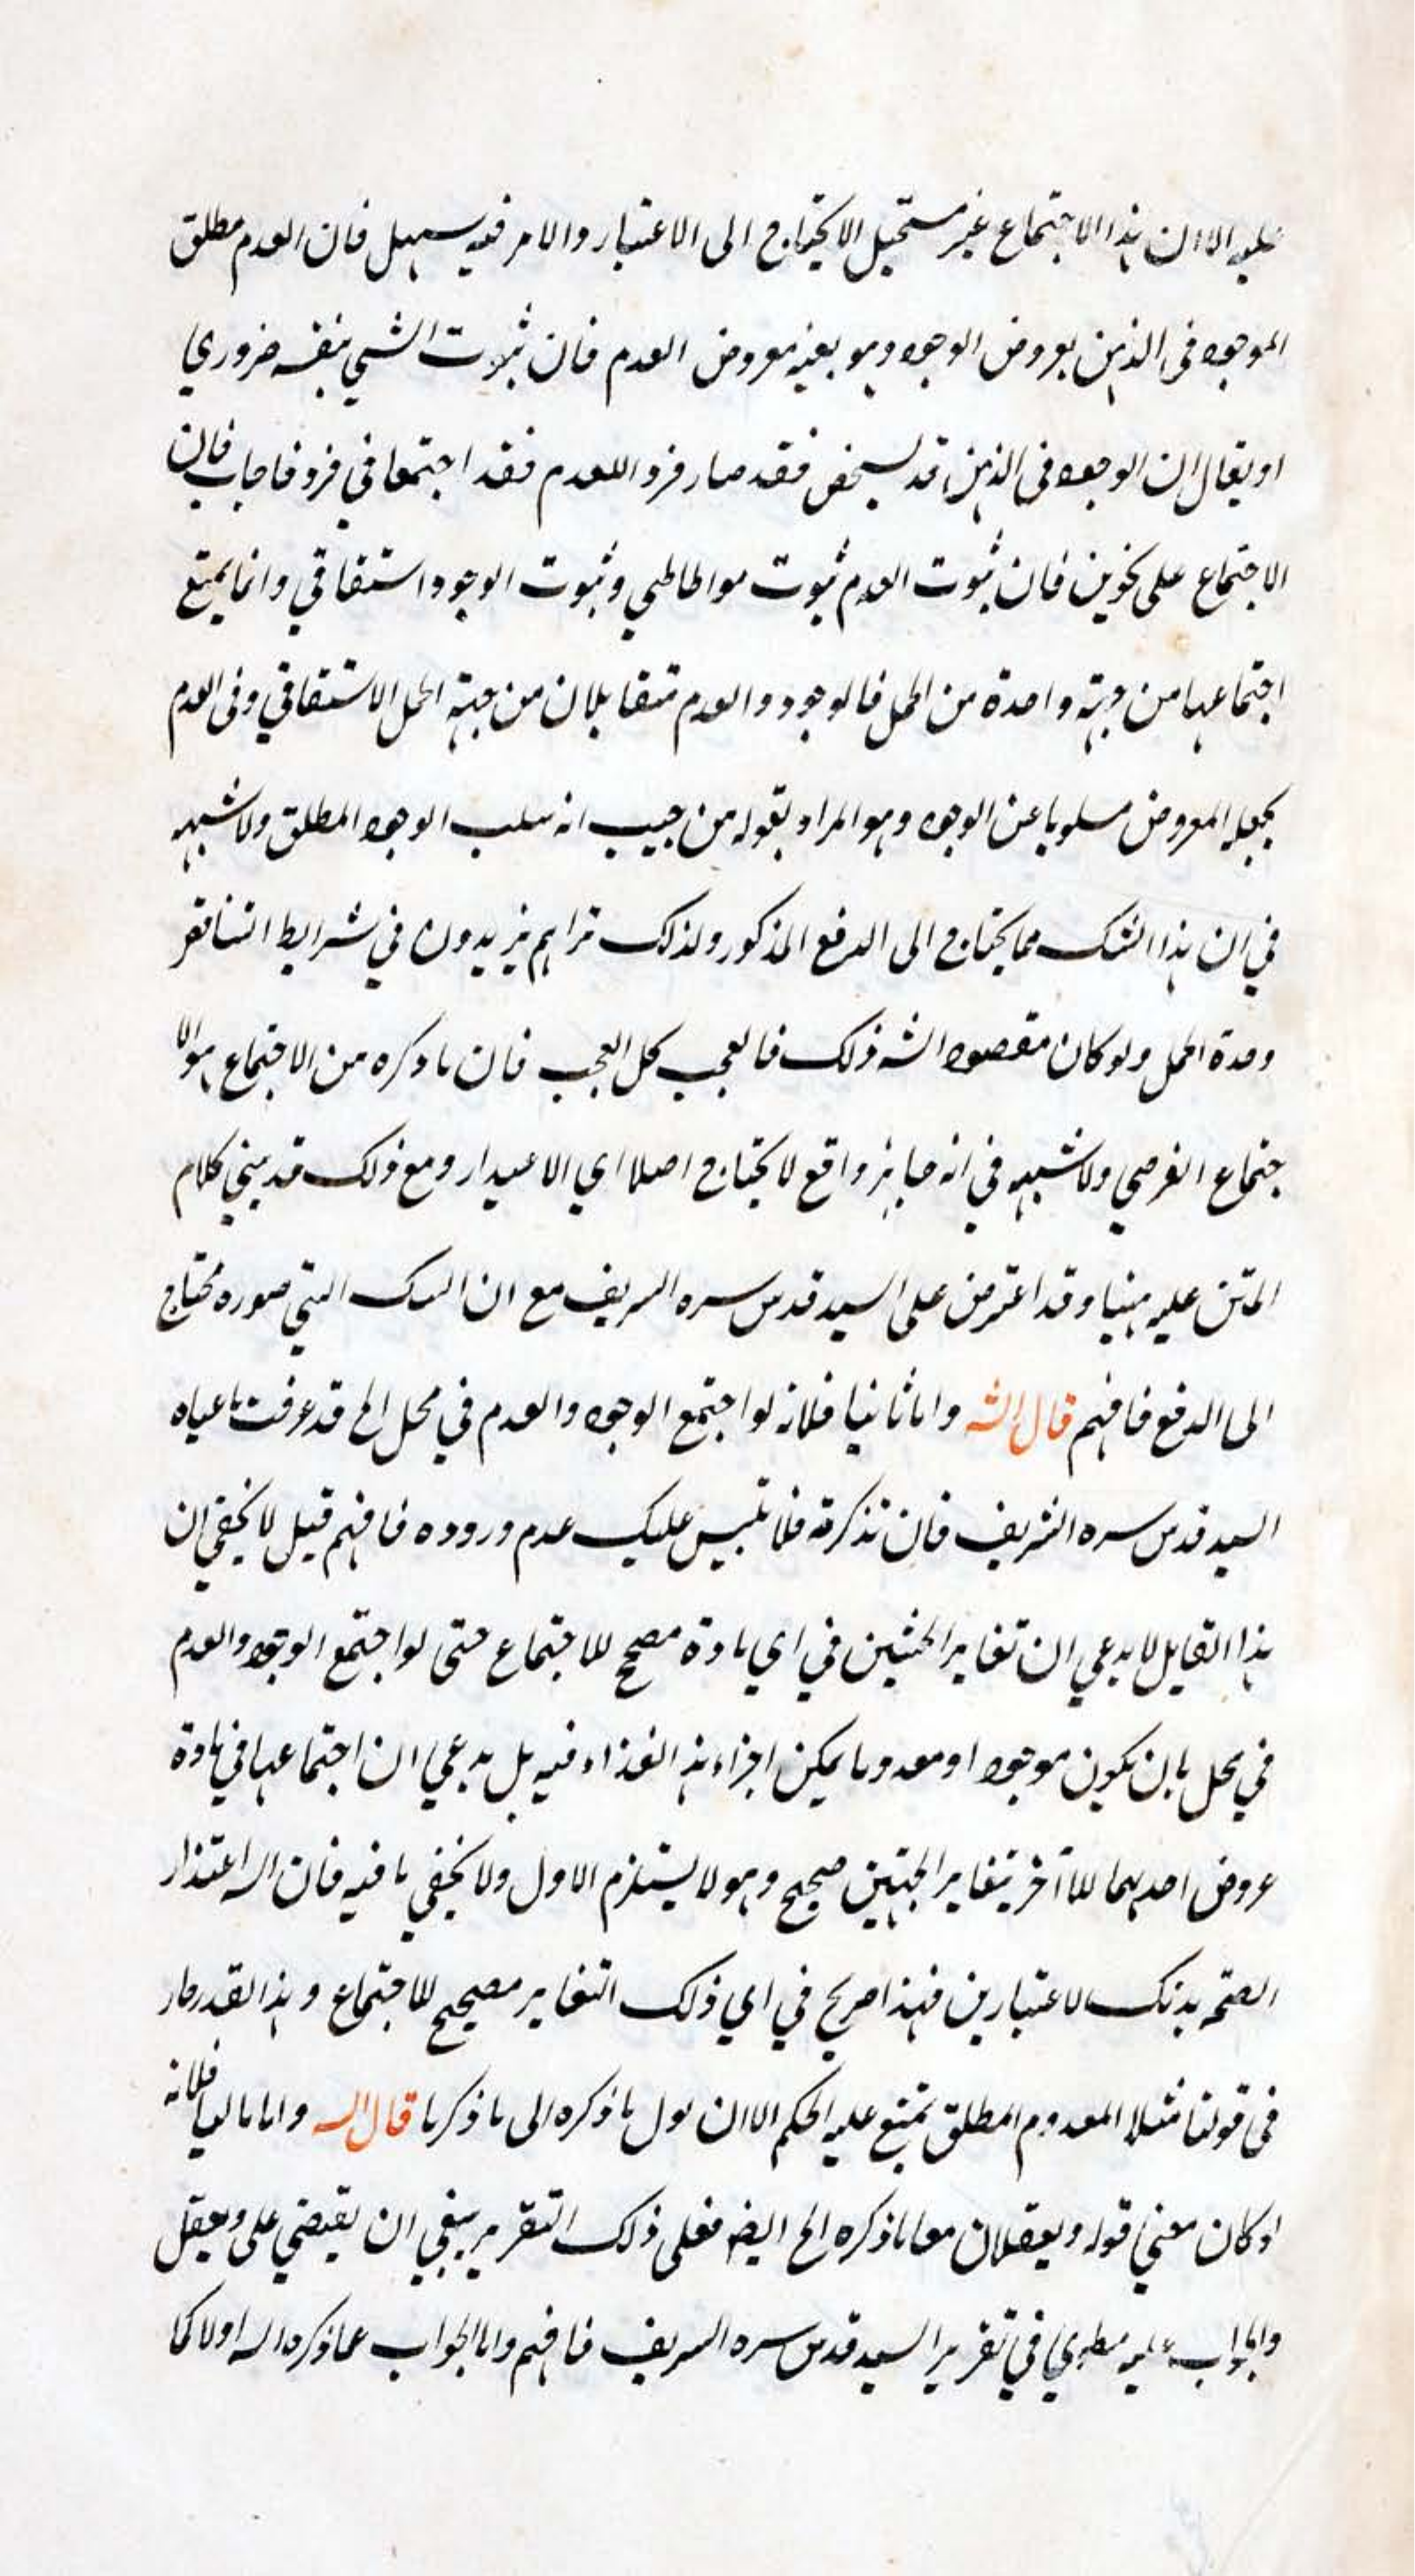 عليه الا ان هذا الاجتماع غير مستحيل الا يحتاج الى الاعتبار والامر فيه سهل فان العدم مطلق
الموجود في الذهن بعروض الوجود وهو بعينه معروض العدم فان ثبوت الشي بنفسه ضروري
او يقال ان الوجود في الذهن قد تشخص فقد صار فردا للعدم فقد اجتمعا في فرد فاجاب فان
الاجتماع على نحوين فان ثبوت العدم ثبوت مواطاطي وثبوت الوجود اشتقاقي وانما يمتنع
اجتماعهما من جهة واحدة من الحمل فالوجود والعدم متقابلان من جهة الحمل الاشتقاقي وفي العدم
يجعل المعروض مسلوبا عن الوجود وهو المراد بقوله من حيث انه سلب الوجود المطلق ولا شبهه
في ان هذا الشك مما يحتاج الى الدفع المذكور ولذلك تراهم يزيدون في شرايط التناقض
وحدة الحمل ولو كان مقصود الشه ذلك فالعجب كل العجب فان ما ذكره من الاجتماع هو الا
جتماع الفرضي ولا شبهه في انه جايز واقع لا يحتاج اصلا اي الا عيدار ومع ذلك قد بيني كلام
المتن عليه ههنا وقد اعترض على السيد قدس سره السريف مع ان السك التي صوره محتاج
الى الدفع فافهم قال الشه واما ثانيا فلانه لو اجتمع الوجود والعدم في محل الخ قد عرفت ما عناه
السيد قدس سره الشريف فان تذكرته فلا تلبس عليك عدم وروده فافهم قيل لا يخفي ان
هذا القايل لا يدعي ان تغاير الحيثين في اي مادة مصحح للاجتماع حتى لو اجتمع الوجود والعدم
في محل بان يكون موجودا ومعدوما يمكن اجزاء هذ الغذاء فيه بل يدعي ان اجتماعهما في مادة
عروض احدهما للاآخر بتغاير الجهتين صحيح وهو لا يستلزم الاول ولا يخفي ما فيه فان اله اعتذار
الصحة بذنك لاعتبارين فهذا صريح في اي ذلك التغاير مصحيح للاجتماع وهذا القدر صار
في قولنا مثلا المعدوم المطلق يمتنع عليه الحكم الا ان لول ما ذكره الى ما ذكرنا قال اله واما مالبا فلانه
او كان معني قوله ويعقلان معا ما ذكره الخ ايضه فعلى ذلك التقرير ينبغي ان يقيضي على ويعقل
والجواب عليه مطوي في تقرير السيد قدس سره السريف فافهم واما الجواب عما ذكره اله اولا كما